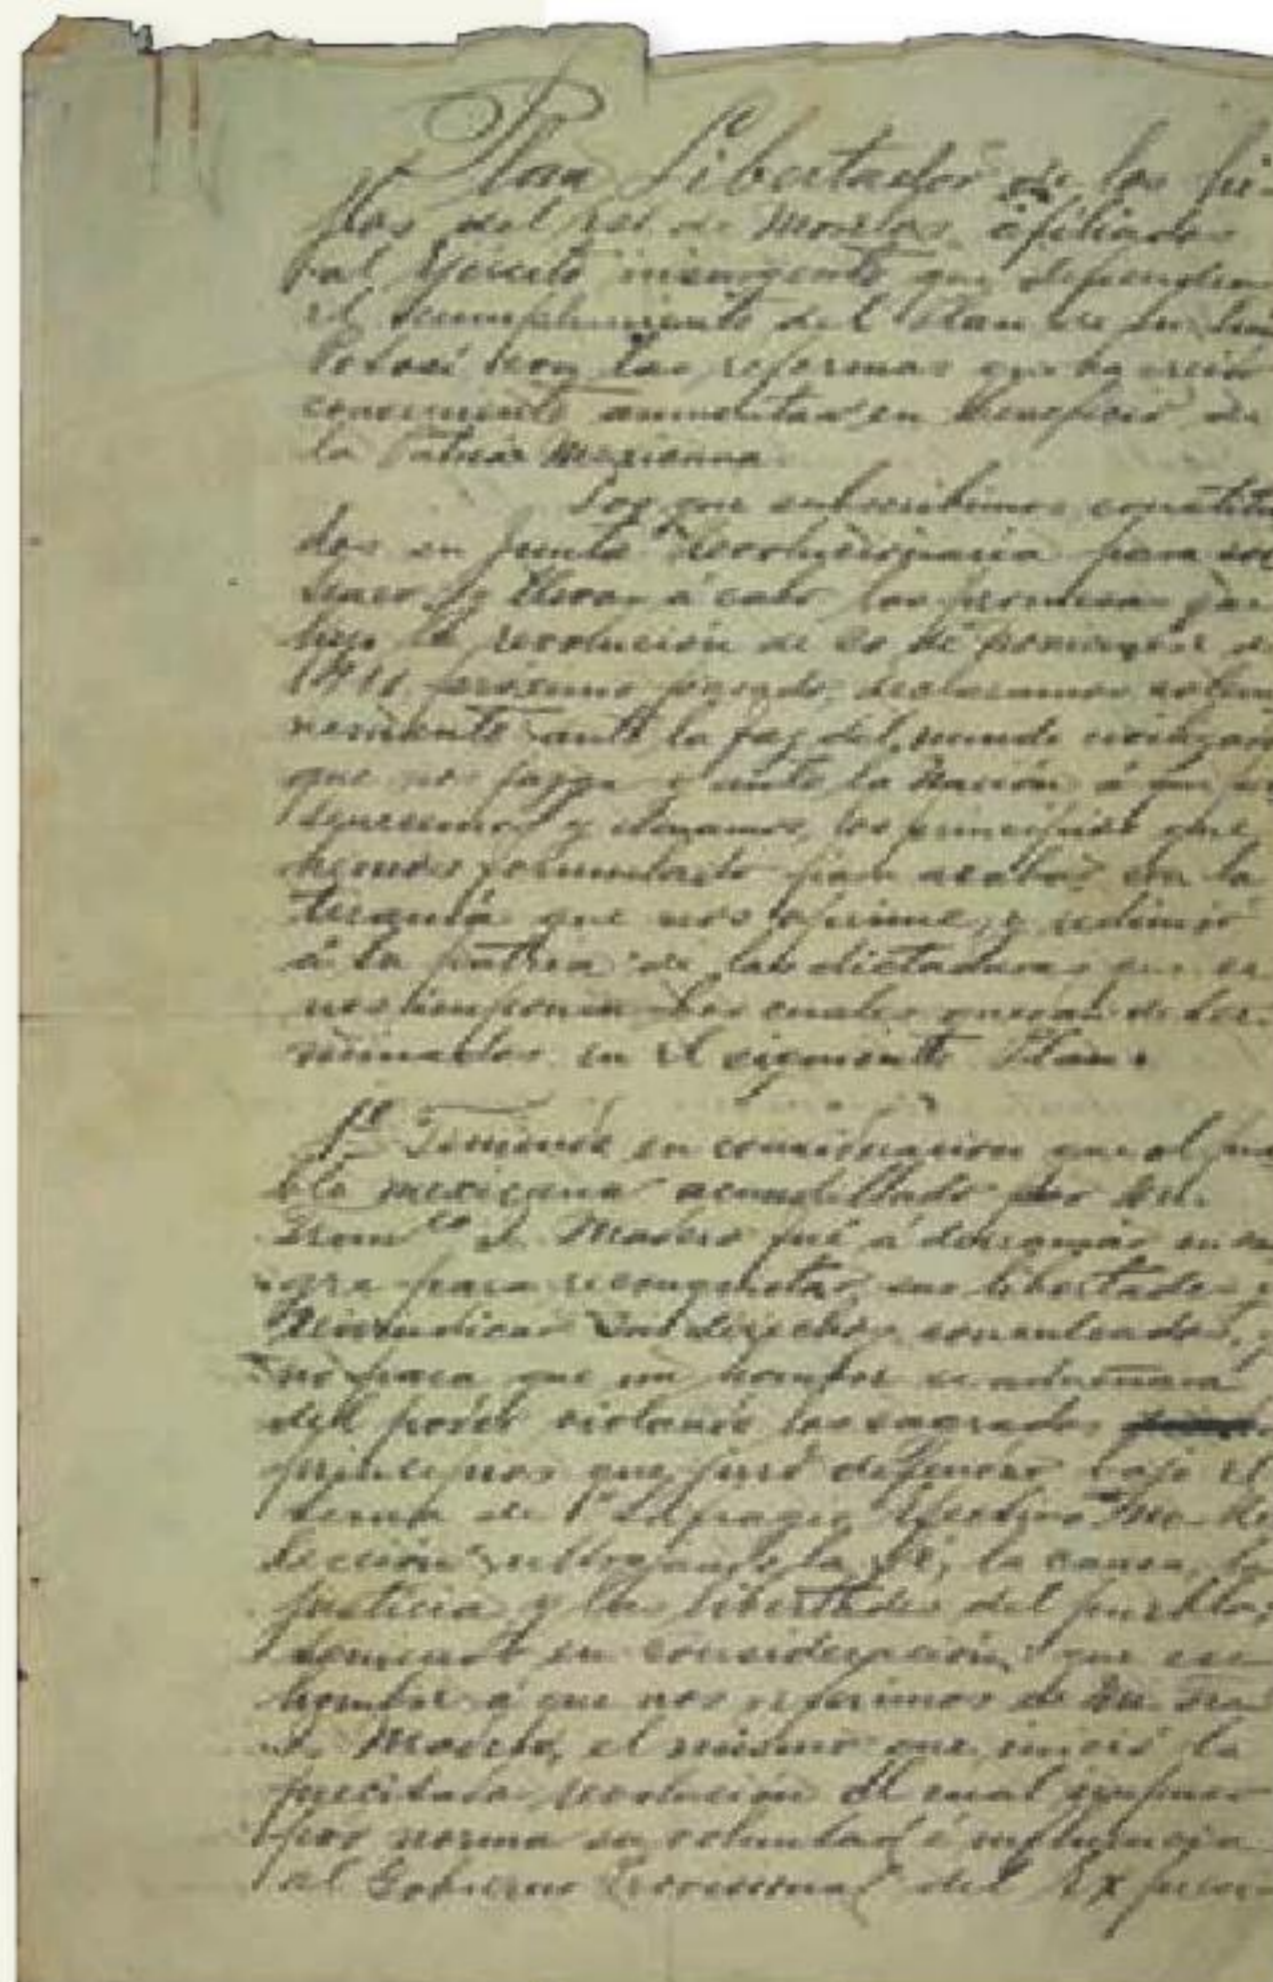 Plan Libertador de los hi-
jos del Est. de Morelos afiliados
al Ejército insurgente que defienden
el cumplimiento del Plan de San Luis
Potosí con las reformas que ha creido
conveniente aumentar en beneficio de
la Patria Mexicana.
Los que subscribimos constitui
dos en Junta Revolucionaria para sos
tener y llevar á cabo las promesas que
hizo la revolución de 20 de Noviembre de
1910 próximo pasado, declaramos solem
nemente ante la faz del mundo civilizado
que nos juzga y ante la Nación á que per
tenecemos y amamos, los principios que
hemos formulado para acabar con la
tiranía que nos oprime y redimir
á la patria de las dictaduras que se
nos imponen los cuales quedan deter-
minados en el siguiente Plan:
1º Teniendo en consideración que el pue
blo mexicano acaudillado por Dn.
Franco. I. Madero fué á derramar su san
gre para reconquistar sus libertades y
reivindicar sus derechos conculcados, y
no para que un hombre se adueñara
del poder violando los sagrados
principios que juró defender bajo el
lema de "Sufragio Efectivo No Re
elección" ultrajando la fé, la causa, la
justicia y las libertades del pueblo,
teniendo en consideración: que ese
hombre á que nos referimos es Dn. Fran
I. Madero, el mismo que inició la
precitada revolución el cual impuso
por norma su voluntad é influencia
al Gobierno Provisional del Ex presi-